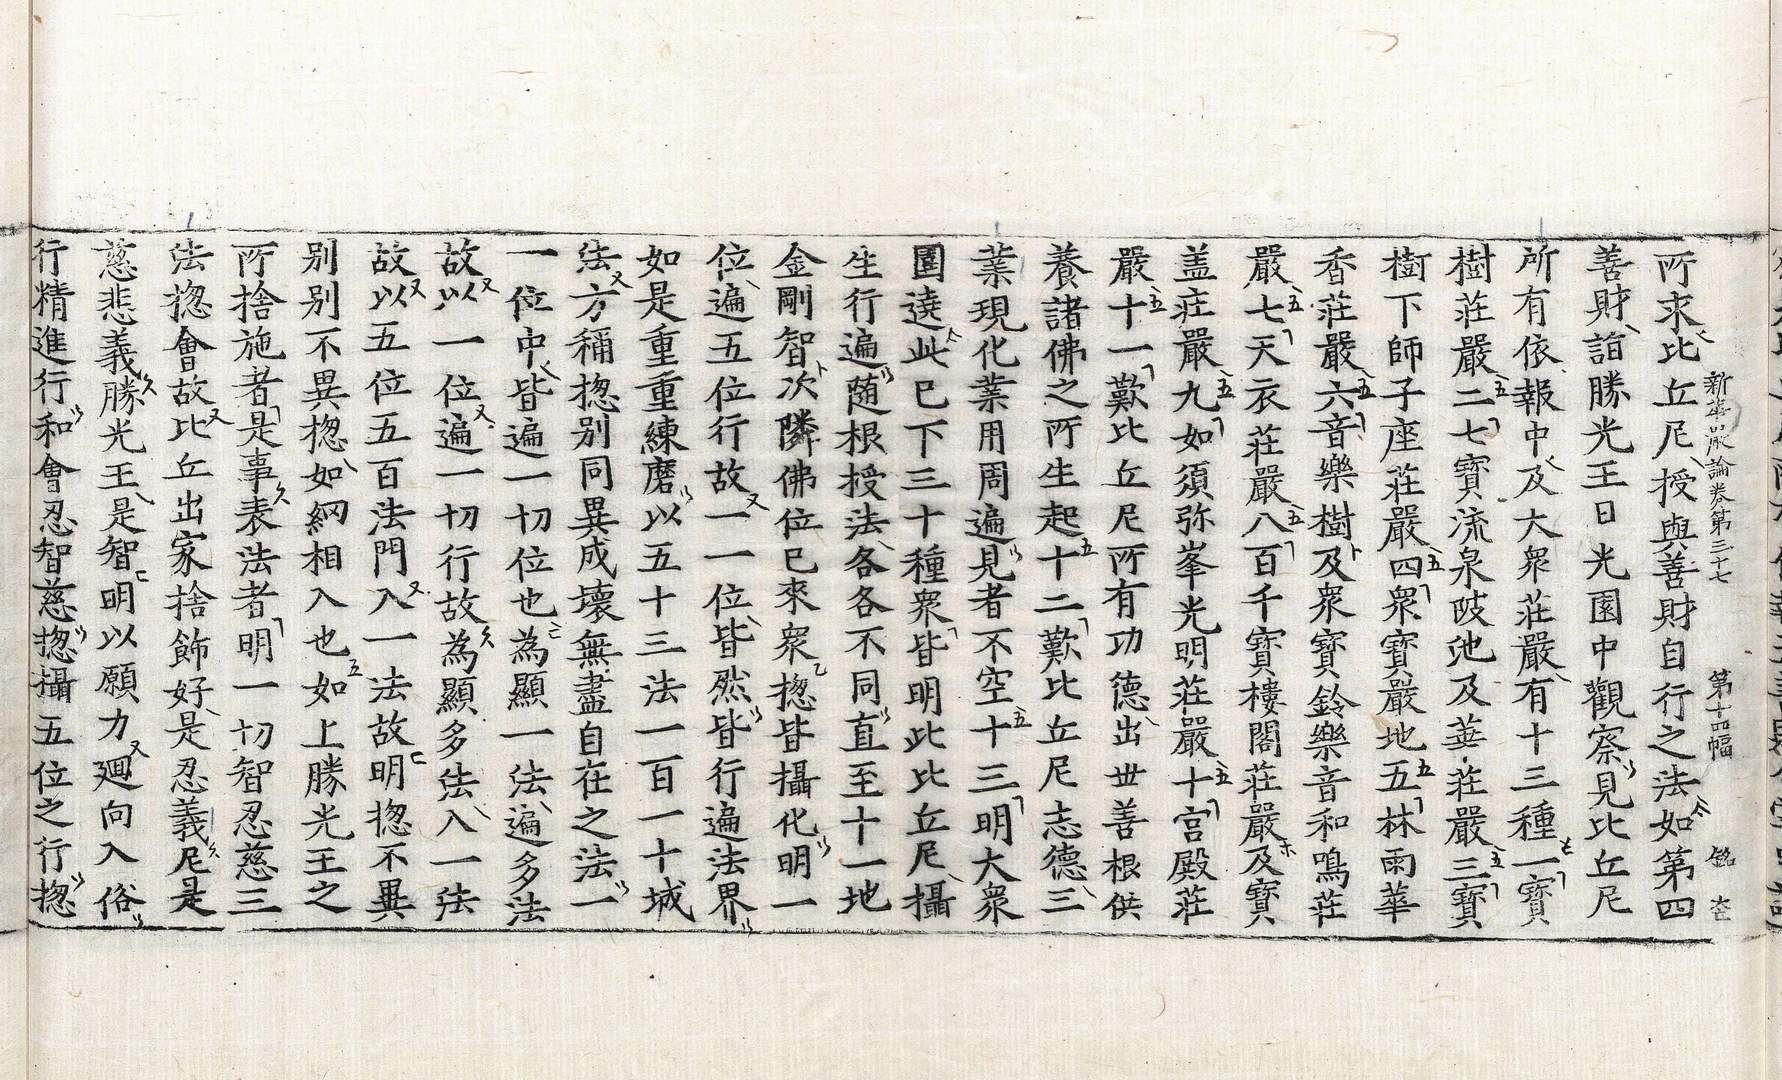 新華嚴論卷第三十七　第十四幅　銘
所求比丘尼授與善財自行之法如第四
善財詣勝光王日光園中觀察見比丘尼
所有依報中及大衆莊嚴有十三種一寶
樹莊嚴二七寶流泉陂池及華莊嚴三寶
樹下師子座莊嚴四衆寶嚴地五林雨華
香莊嚴六音樂樹及衆寶鈴樂音和鳴莊
嚴七天衣莊嚴八百千寶樓閣莊嚴及寶
盖莊嚴九如須弥峯光明莊嚴十宮殿莊
嚴十一歎比丘尼所有功德出世善根供
養諸佛之所生起十二歎比丘尼志德三
業現化業用周遍見者不空十三明大衆
圍遶此已下三十種衆皆明此比丘尼攝
生行遍随根授法各各不同直至十一地
金剛智次隣佛位已來衆揔皆攝化明一
位遍五位行故一一位皆然皆行遍法界
如是重重練磨以五十三法一百一十城
法方稱揔別同異成壞無盡自在之法一
一位中皆遍一切位也為顯一法遍多法
故以一位遍一切行故為顯多法入一法
故以五位五百法門入一法故明揔不異
别别不異揔如網相入也如上勝光王之
所捨施者是事表法者明一切智忍慈三
法揔會故比丘出家捨飾好是忍義尼是
慈悲義勝光王是智明以願力廻向入俗
行精進行和會忍智慈揔攝五位之行揔